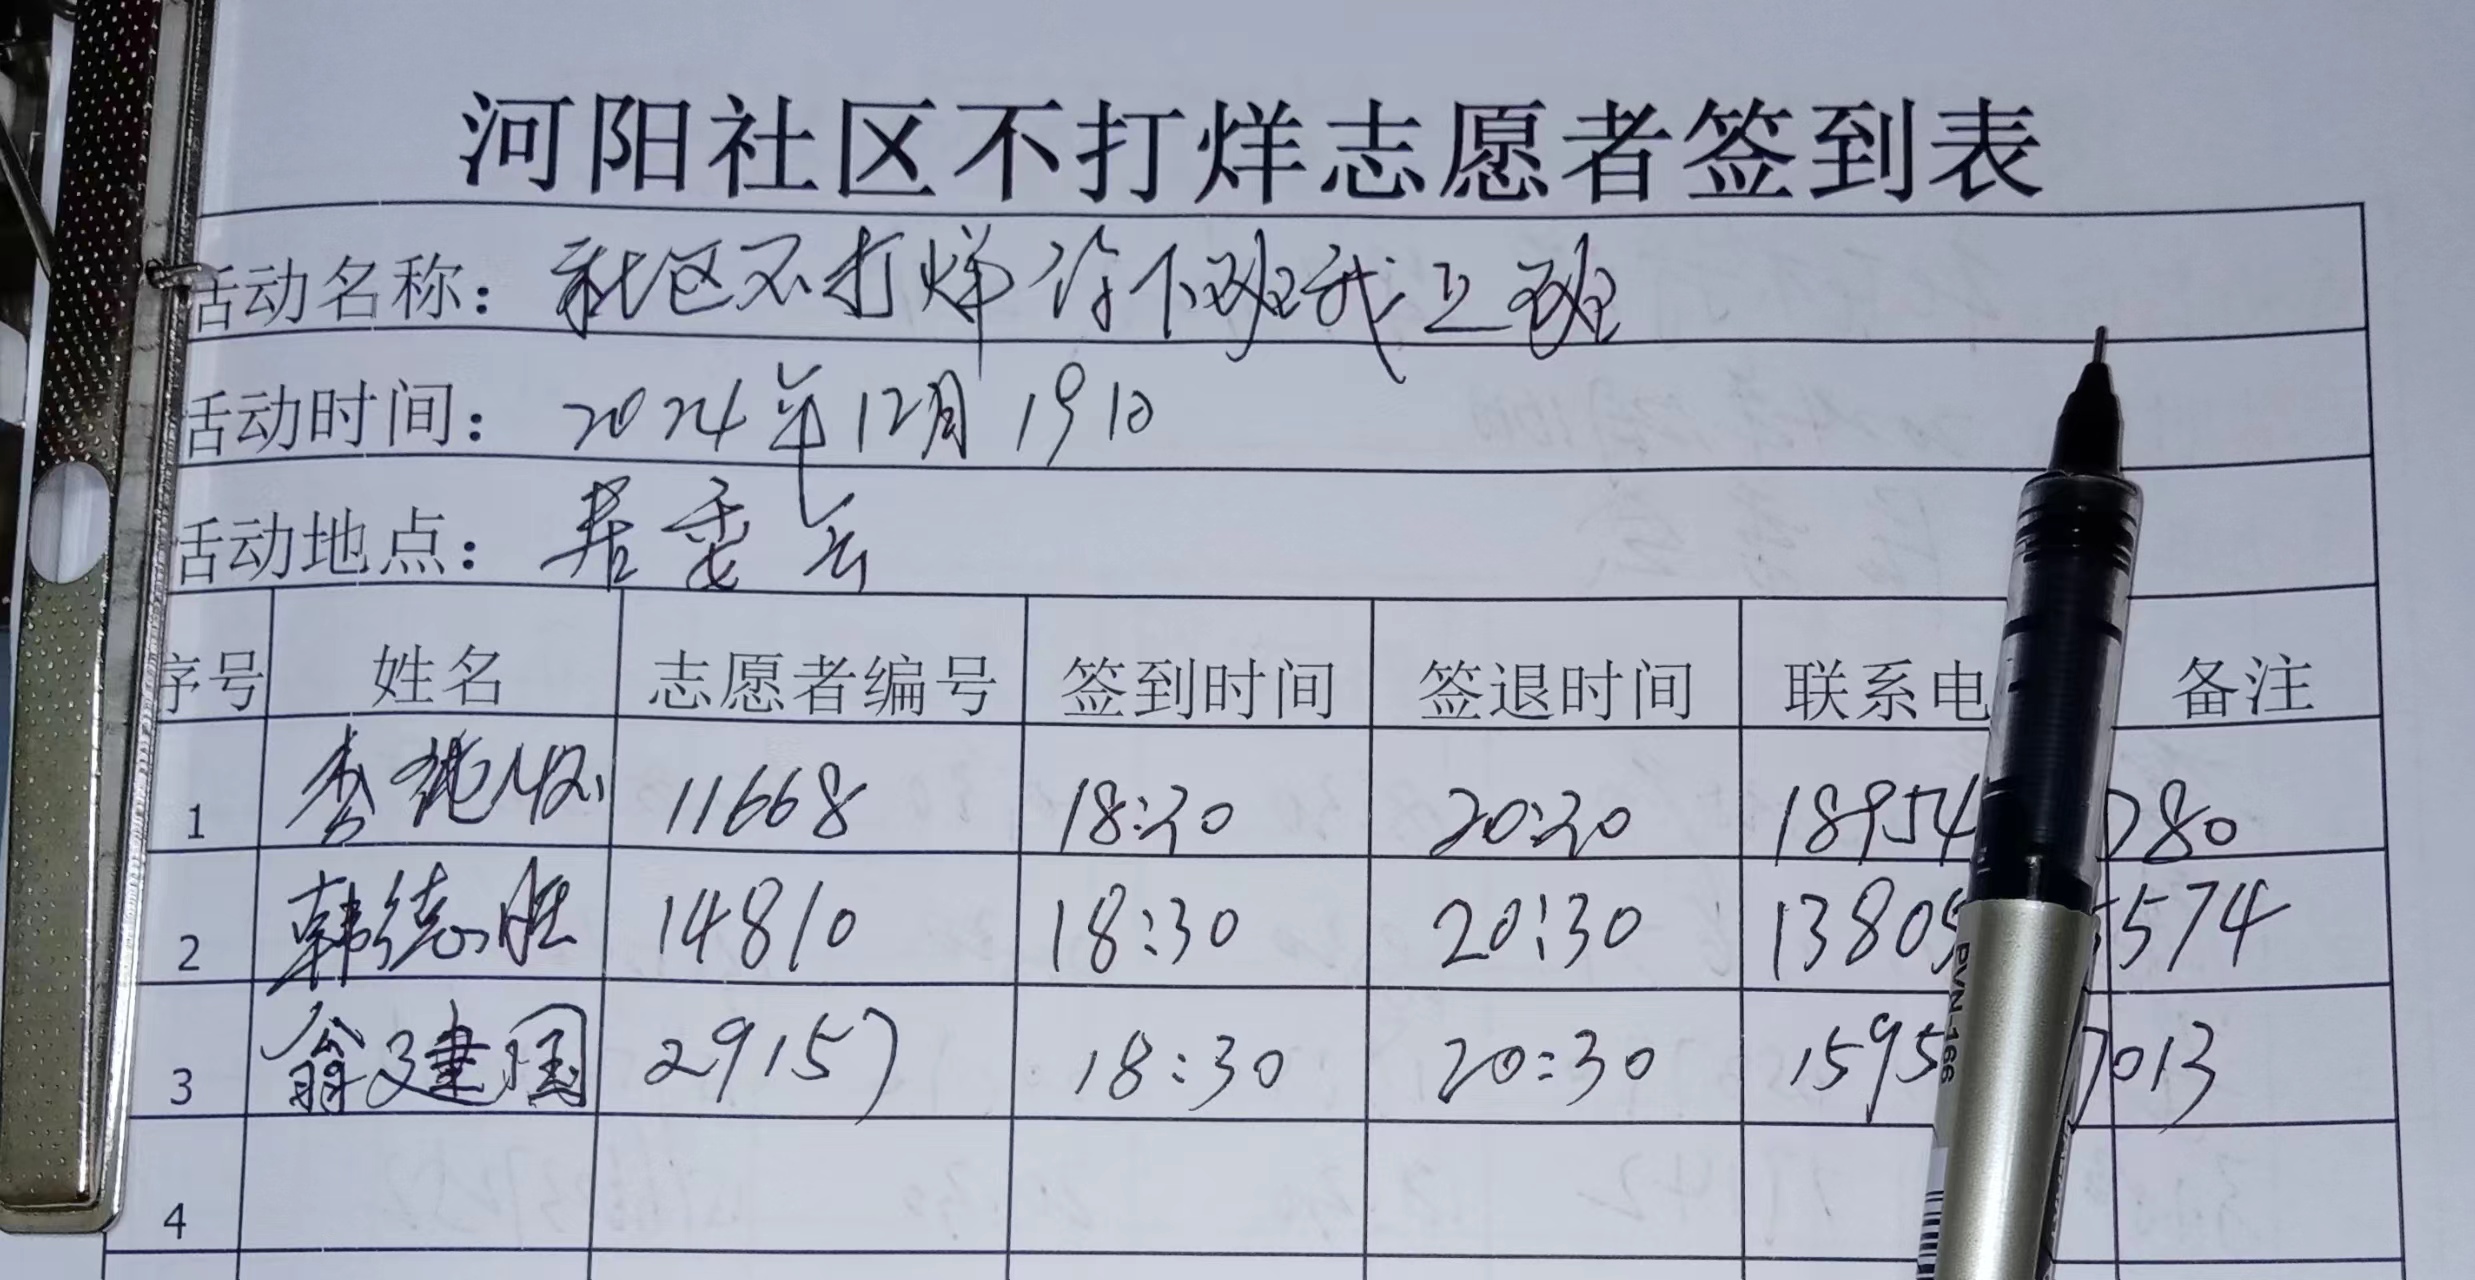 河阳社区不打烊志愿者签到表
活动名称：社区不打烊 你下班我上班
活动时间：2024年12月19日
活动地点：居委会
序号 姓名 志愿者编号 签到时间 签退时间 联系电 备注
1 李 11668 18:30 20:30 18954 780
2 韩德胜 14810 18:30 20:30 13805 5574
3 翁建国 29157 18:30 20:30 1595 7013
4
PVN-166